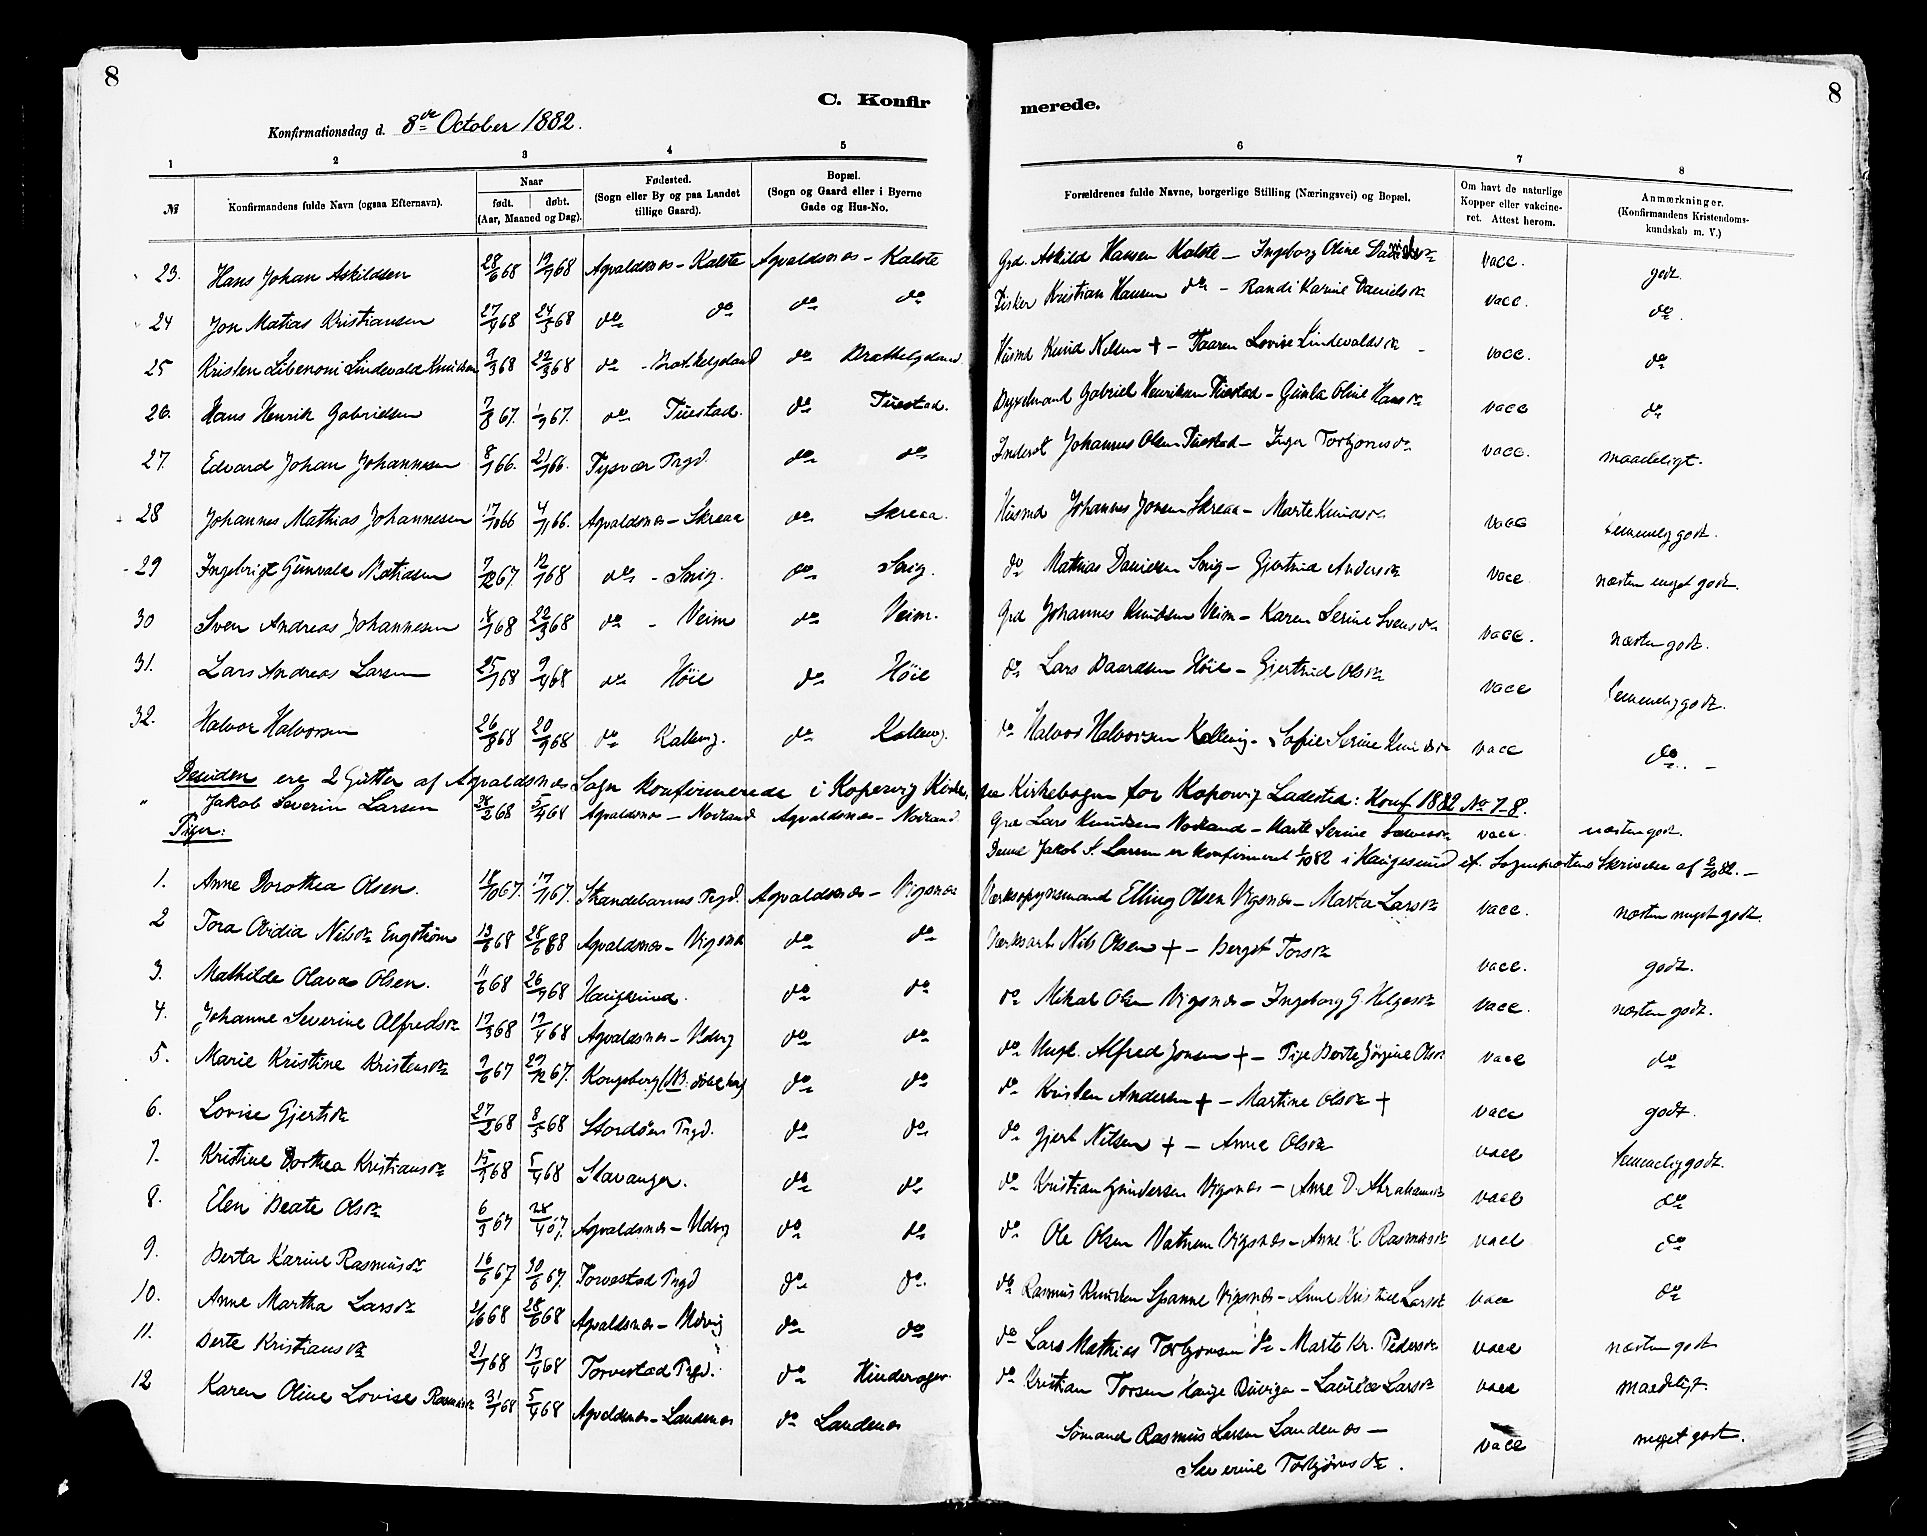 8
8
C. Konfir
merede.
Konfirmationsdag d. 8de October 1882.
1 2 3 4 5 6 7 8
№ Konfirmandens fulde Navn (ogsaa Efternavn). Naar født. døbt. (Aar, Maaned og Dag). Fødested. (Sogn eller By og paa Landet tillige Gaard). Bopæl. (Sogn og Gaard eller i Byerne Gade og Hus-No. Forældrenes fulde Navne, borgerlige Stilling (Næringsvei) og Bopæl. Om havt de naturlige Kopper eller vakcineret. Attest herom. Anmærkninger. (Konfirmandens Kristendomskundskab m. V.)
23. Hans Johan Askildsen 28/6 68 19/7 68 Agvaldsnæs - Kalstø Agvaldsnæs - Kalstø Grd. Askild Hansen Kalstø - Ingeborg Oline vacc. godt.
24 Jon Matias Kristiansen 27/4 68 24/5 68 do do do do Fisker Kristian Hansen do - Randi Karine Danielsdr vacc. do.
25 Kristen Libenoni Lindevald Knudsen 9/3 68 22/3 68 do - Brattelgsland do Brattelgsland Husmd Knud Nelsen + - Taaren Lovise Lindevaldsdr vacc. do
26. Hans Henrik Gabrielsen 7/8 67. 1/9 67. do Tuestad. do Tuestad. Gabriel Henriksen Tuestad - Gunla Oline Hansdr vacc do
27. Edvard Johan Johannesen 8/1 66. 21/1 66. Tysvær Prgd. do do Inderst Johannes Olsen Tuestad - Inger Torbjornsdr vacc. maadeligt.
28 Johannes Mathias Johannesen 17/10 66 4/11 66. Agvaldsnæs - Skreaa do Skreaa. Husmd Johannes Jonsen Skreaa - Marte Knudsdr vacc temmelig godt.
29 Ingebrigt Gunvald Mathiasen 7/12 67. 12/1 68 do - Snig. do Snig. do Mathias Danielsen Snig - Gjertrud Andersdr vacc næsten meget godt.
30 Sven Andreas Johannesen /1 68 22/3 68 do - Veim do Veim. Grd Johannes Knudsen Veim - Karen Serine Svensdr vacc. næsten godt.
31. Lars Andreas Larsen 25/1 68 9/4 68 do Höie do Höie do Lars Baardsen Höie - Gjertrud Olsdr vacc temmelig godt.
32. Halvor Halvorsen 26/8 68 20/9 68 do Kallevig. do Kallevig. do Halvor Halvorsen Kallevig - Sofie Serine Knudsdr vacc do.
Desuden ere 2 Gutter af Agvaldsnæs Sogn konfirmerede i Kopervig Kirke, se Kirkebogen for Kopervig Ladested: Konf. 1882 No 7-8.
" Jakob Severin Larsen 28/2 68 5/4 68 Agvaldsnæs - Nordland Agvaldsnæs - Nordland Grd Lars Knudsen Nordland - Marte Serine vacc. næsten godt.
Denne Jakob S. Larsen er konfirmeret 1/10 82 i Haugesund ef. Sognepræstens Skrivelse af 2/10 82. -
Piger:
1. Anne Dorothea Olsen. 18/10 67. 17/11 67. Strandebarms Prgd. Agvaldsnæs - Vigsnæs Elling Olsen Vigsnæs - Marta Larsdr vacc. næsten meget godt.
2 Tora Ovidia Nilsdr Engstrøm 13/6 68 28/6 68 Agvaldsnæs - Vigsnæs do do Værksarb. Nils Olsen + - Berget Torsdr vacc. godt.
3. Mathilde Olava Olsen. 11/6 68 26/9 68 Haugesund. do do do Mikal Olsen Vigsnæs - Ingeborg G. Helgesdr vacc. næsten godt.
4. Johanne Severine Alfredsdr 17/3 68 19/4 68 Agvaldsnæs - Udvig do do do Ungk. Alfred Jonsen + - Pige Berte Jörgine Olsdr vacc do
5. Marie Kristine Kristensdr 9/6 67 27/12 67. Kongsberg (NB. do do do Kristen Andersen + - Martine Olsdr + vacc godt.
6. Lovise Gjertsdr 27/2 68 8/3 68 Stordøens Prgd. do do do Gjert Nilsen + - Anne Olsdr vacc temmelig godt.
7. Kristine Dorthea Kristiansdr 15/3 68 5/4 68 Stavanger. do do do Kristian Gundersen Vigsnæs - Anne D. Abrahamsdr vacc do
8. Elen Beate Olsdr 6/3 67 28/4 67. Agvaldsnæs - Udvig do do do Ole Olsen Vatnem Vigsnæs - Anne K. Rasmusdr vacc do
9. Berta Karine Rasmusdr 16/6 67 30/6 67. Torvestad Prgd do do do Rasmus Knudsen Spanne Vigsnæs - Anne Kristine Larsdr vacc do
10. Anne Martha Larsdr 68 28/6 68 Agvaldsnæs - Udvig do do do Lars Mathias Torbjornsen do - Marte Kr. Pedersdr vacc næsten godt
11. Berte Kristiansdr 21/1 68 13/4 68 Torvestad Prgd. do Hinderager. do Kristian Torsen Hauge - Larsdr vacc maadeligt.
12 Karen Oline Lovise Rasmusdr 31/1 68 5/4 68 Agvaldsnæs - Landenæs do Landenæs Sömand Rasmus Larsen Landenæs - vacc meget godt.
Severine Torbjörnsdr.